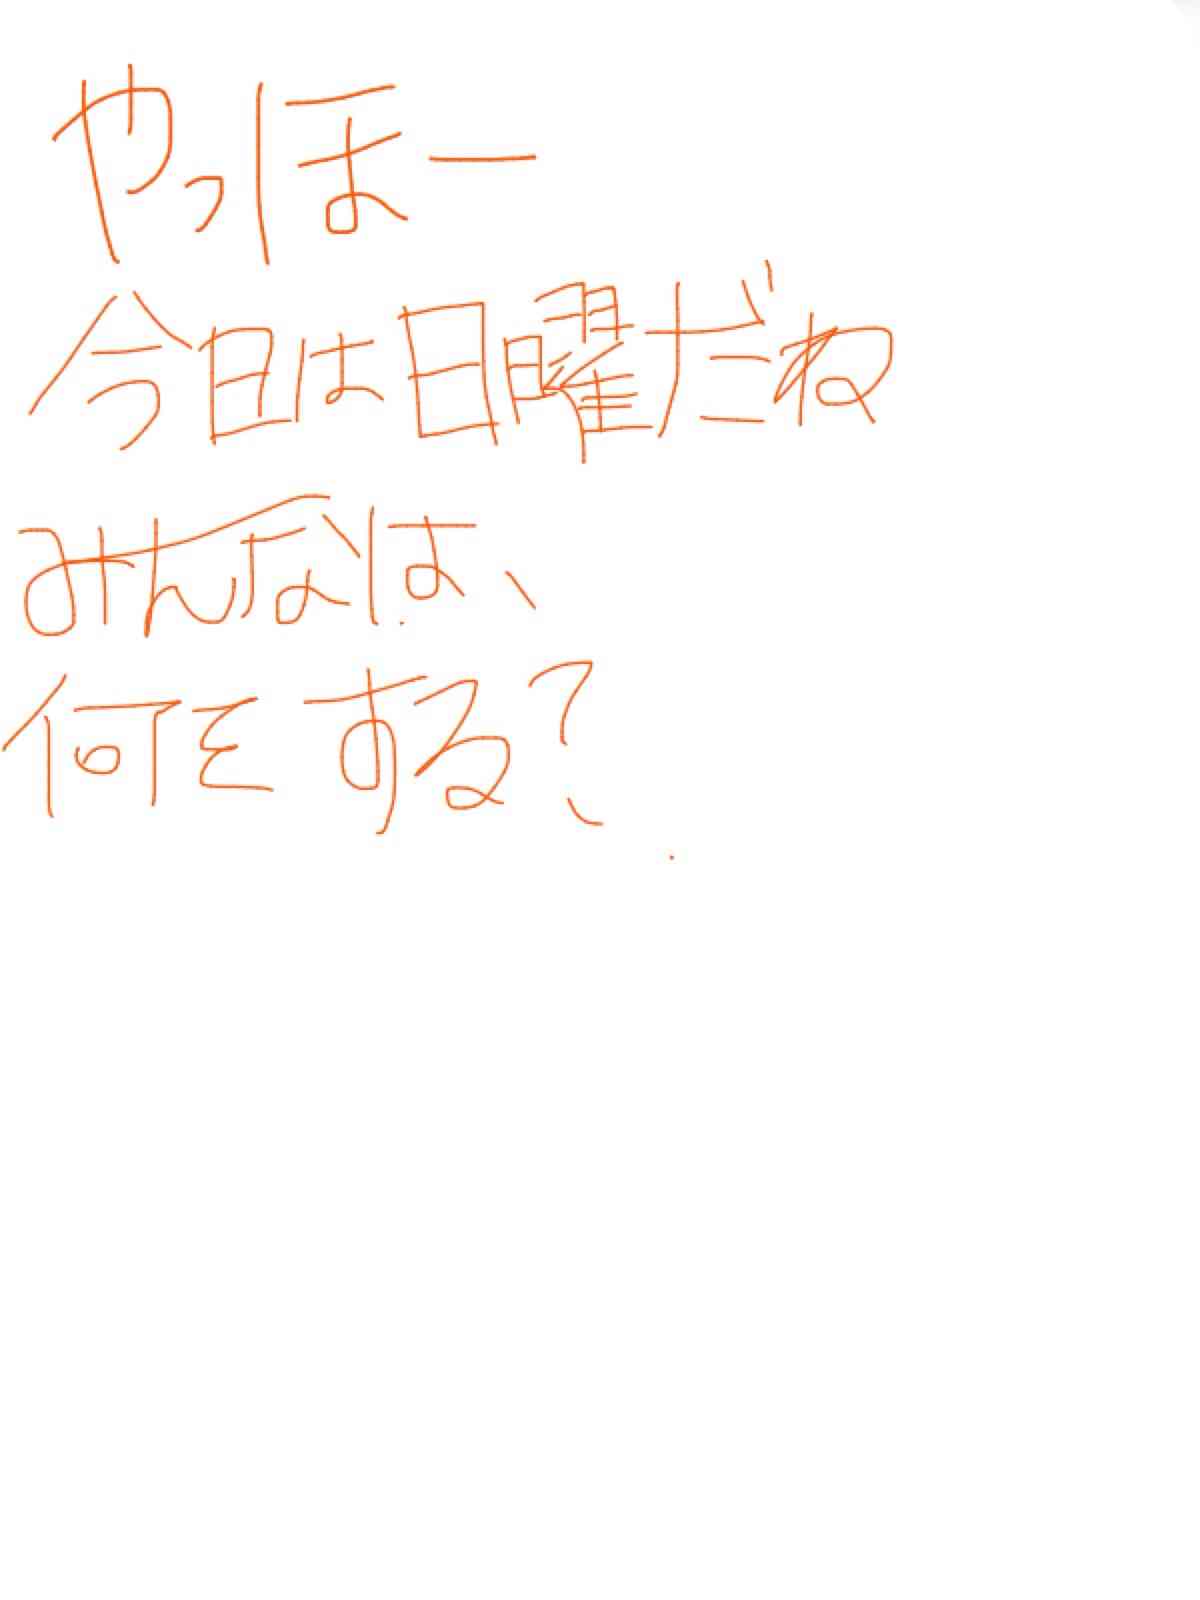 やっほー
今日は日曜だね
みんなは、
何をする?